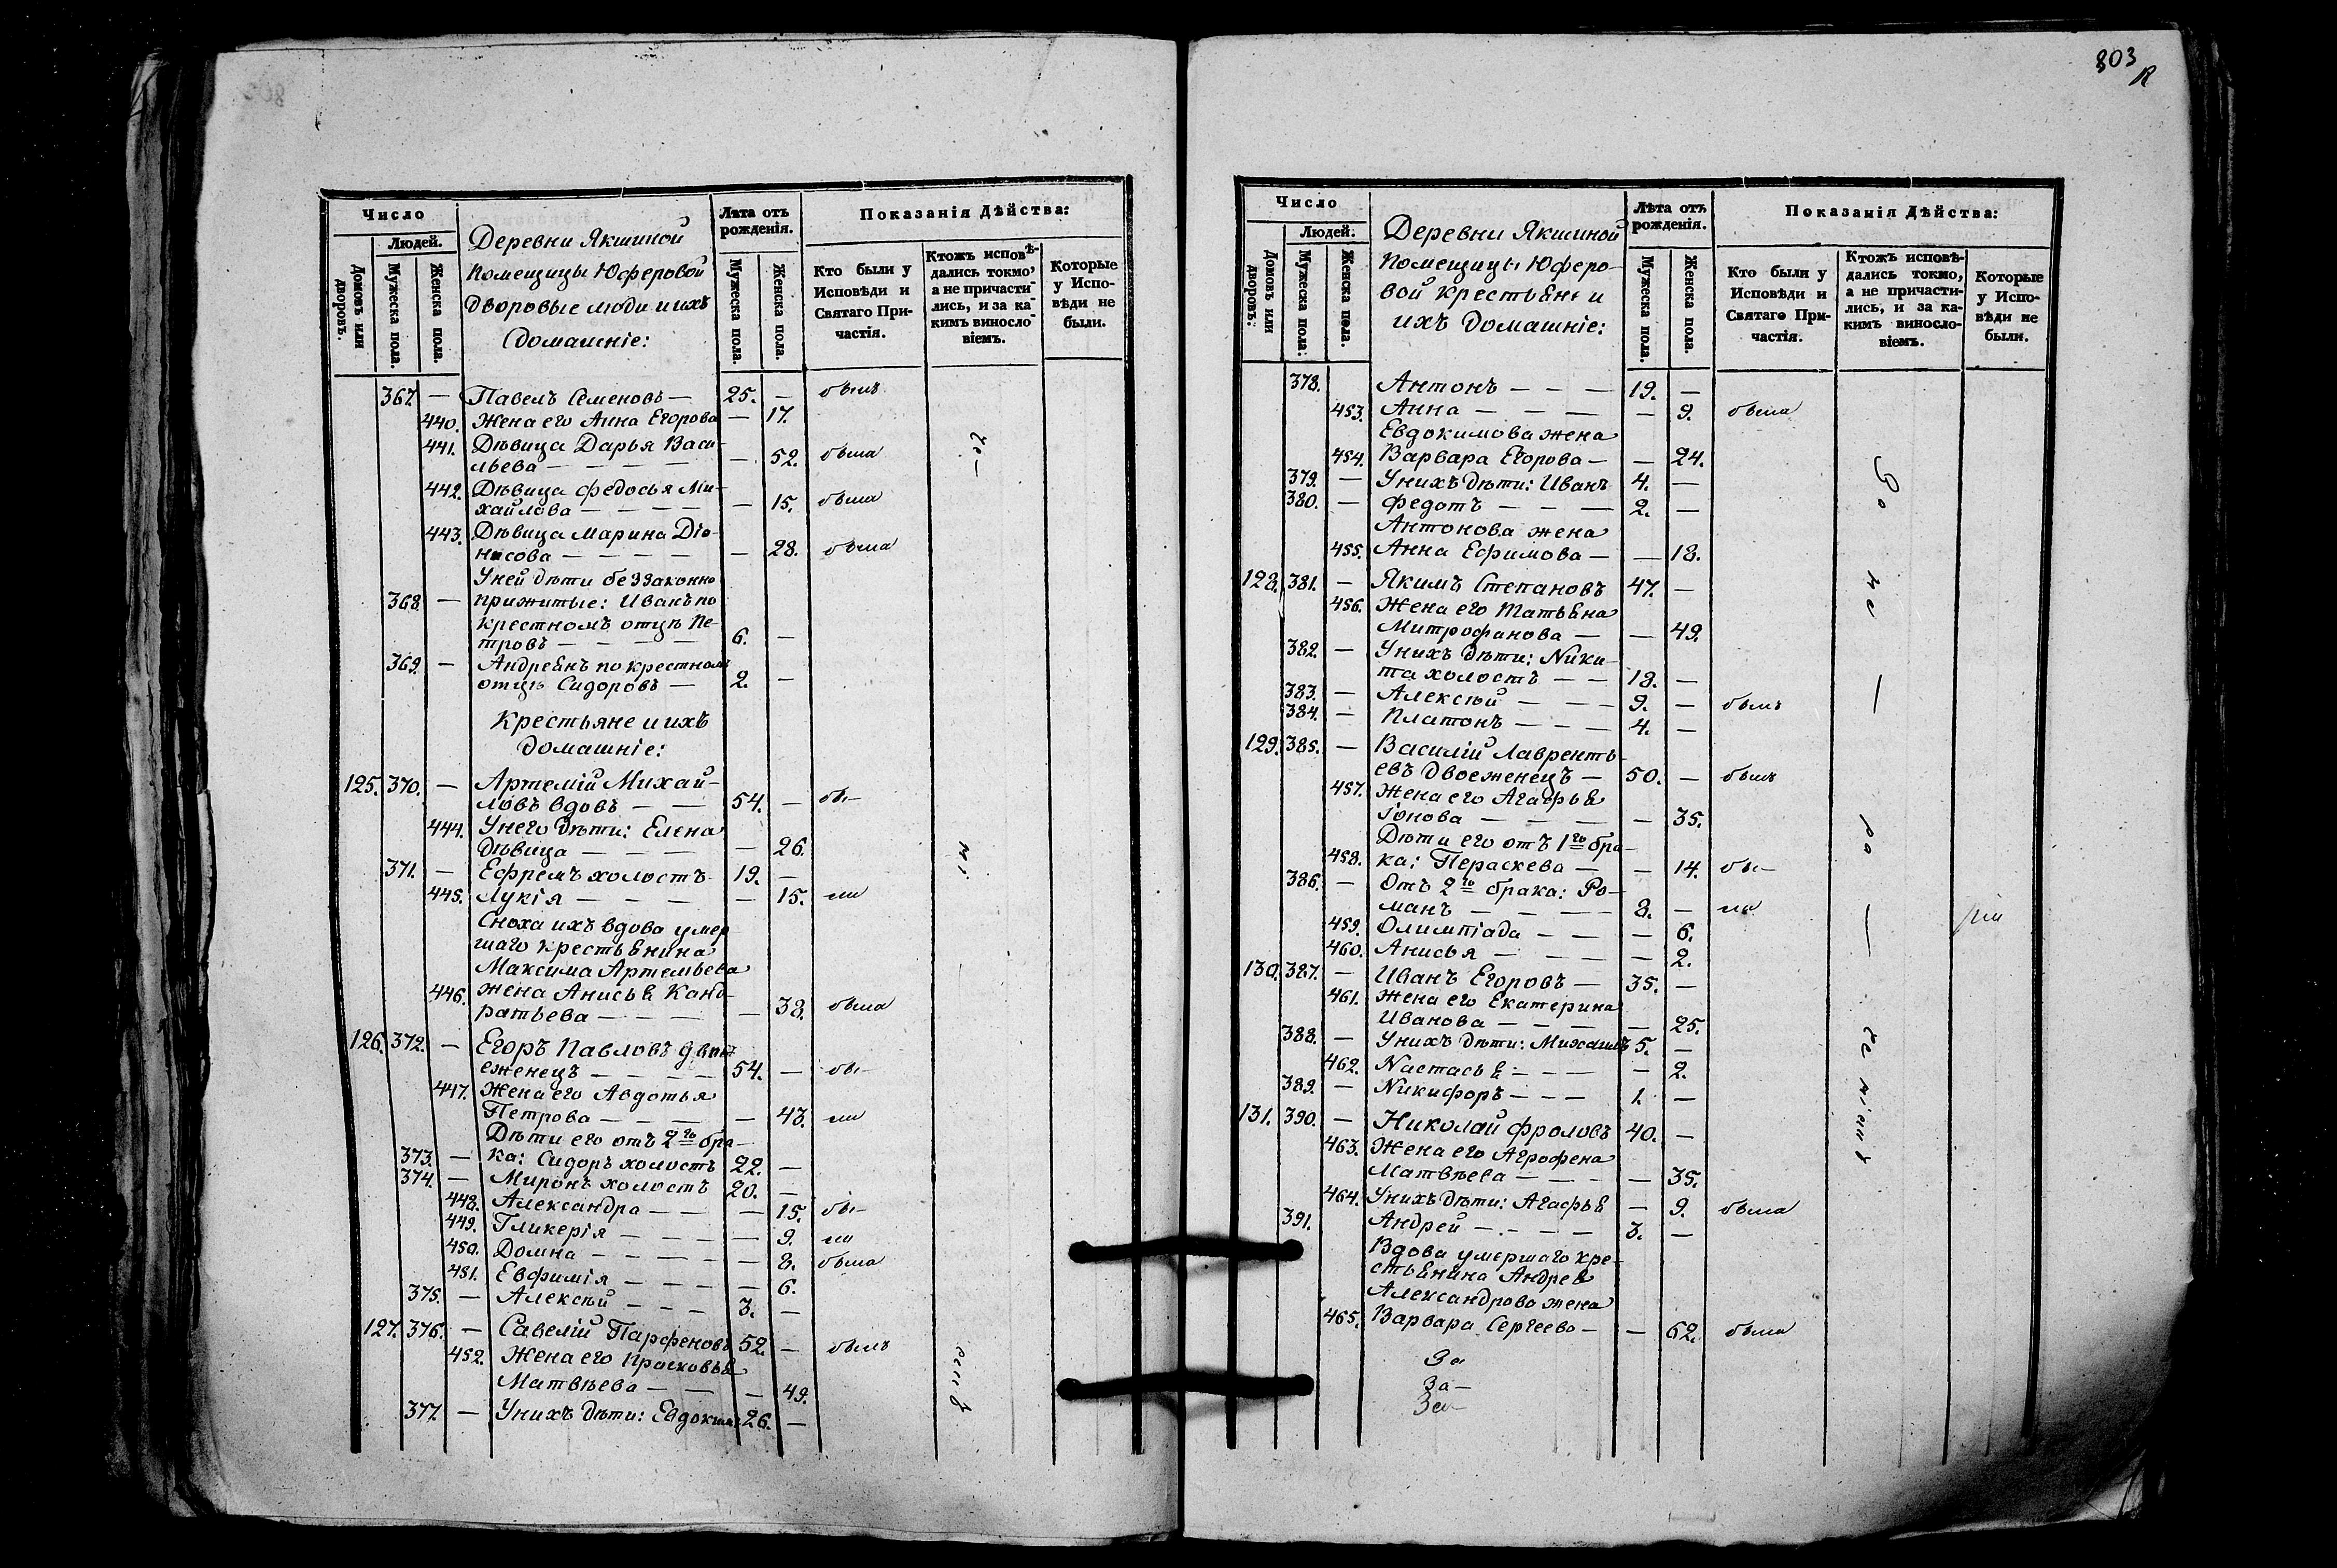 803
Число
Людей.
Домовъ или дворовъ.
Мужеска пола.
Женска пола.
Деревни Якшиной
Помещицы Юферовой
Дворовые люди и ихъ
Домашніе:
Лѣта отъ рожденія.
Мужеска пола.
Женска пола.
Показанія Дѣйства:
Кто были у Исповѣди и Святаго Причастія.
Ктожъ исповѣдались токмо, а не причастились, и за какимъ винословіемъ.
Которые у Исповѣди не были.
367. — Павелъ Семеновъ — 25. — былъ
440. Жена его Анна Егорова — 17.
441. Дѣвица Дарья Васи-
льева — — — — — 52. была
442. Дѣвица Федосья Ми-
хайлова — — — — — 15. была
443. Дѣвица Марина Діо-
нисова — — — — — 28. была
У ней дѣти беззаконно
368. — прижитые: Иванъ по
крестномъ отцѣ Пе-
тровъ — — — 6. —
369. — Андреянъ по крестному
отцѣ Сидоровъ — 2. —
Крестьяне и ихъ
домашніе:
125. 370. — Артемій Михай-
ловъ вдовъ — — 54. — бы-
444. У него дѣти: Елена
дѣвица — — — — 26.
371. — Ефремъ холостъ 19. —
445. Лукія — — — — 15. ли
Сноха ихъ вдова умер
шаго крестьянина
Максима Артемьева
446. жена Анисья Конд-
ратьева — — — — 38. была
126. 372. — Егоръ Павловъ двое
еженецъ — — — — 54. — бы-
447. Жена его Авдотья
Петрова — — — — 43. ли
Дѣти его отъ 2го бра-
373. — ка: Сидоръ холостъ 22. —
374. — Миронъ холостъ 20. —
448. Александра — — — 15. бы-
449. Гликерія — — — — 9. ли
450. Домна — — — — 8. была
451. Евфимія — — — — 6.
375. — Алексѣй — — — 3. —
127. 376. — Савелій Парфеновъ 52. — былъ
452. Жена его Прасковья
Матвѣева — — — 49.
377. — У нихъ дѣти: Евдокимъ 26. —
Число
Людей.
Домовъ или дворовъ.
Мужеска пола.
Женска пола.
Деревни Якшиной
Помещицы Юферо-
вой крестьяне и
ихъ домашніе:
Лѣта отъ рожденія.
Мужеска пола.
Женска пола.
Показанія Дѣйства:
Кто были у Исповѣди и Святаго Причастія.
Ктожъ исповѣдались токмо, а не причастились, и за какимъ винословіемъ.
Которые у Исповѣди не были.
378. Антонъ — — — 19. —
453. Анна — — — — 9. была
Евдокимова жена
454. Варвара Егорова — — 24.
379. — У нихъ дѣти: Иванъ 4. —
380. — Федотъ — — — 2. —
Антонова жена
455. Анна Ефимова — — 18.
128. 381. — Якимъ Степановъ 47. —
456. Жена его Татьяна
Митрофанова — — 49.
382. — У нихъ дѣти: Ники-
та холостъ — — 18. —
383. — Алексѣй — — — 9. — былъ
384. — Платонъ — — — 4. —
129. 385. — Василій Лавренть-
евъ двоеженецъ — 50. — былъ
457. Жена его Агафья
Іонова — — — — 35.
Дѣти его отъ 1го бра-
458. ка: Пераскева — — 14. бы-
386. — Отъ 2го брака: Ро-
манъ — — — — 8. — ли
459. Олимпіада — — — 6.
460. Анисья — — — — 2.
130. 387. — Иванъ Егоровъ — 35. —
461. Жена его Екатерина
Иванова — — — — 25.
388. — У нихъ дѣти: Михаилъ 5. —
462. Настасья — — — — 2.
389. — Никифоръ — — — 1. —
131. 390. — Николай Фроловъ 40. —
463. Жена его Агрофена
Матвѣева — — — — 35.
464. У нихъ дѣти: Агафья — 9. была
391. Андрей — — — — 3. —
Вдова умершаго кре-
стьянина Андрея
Александрова жена
465. Варвара Сергеева — — 62. была
За
За-
За-